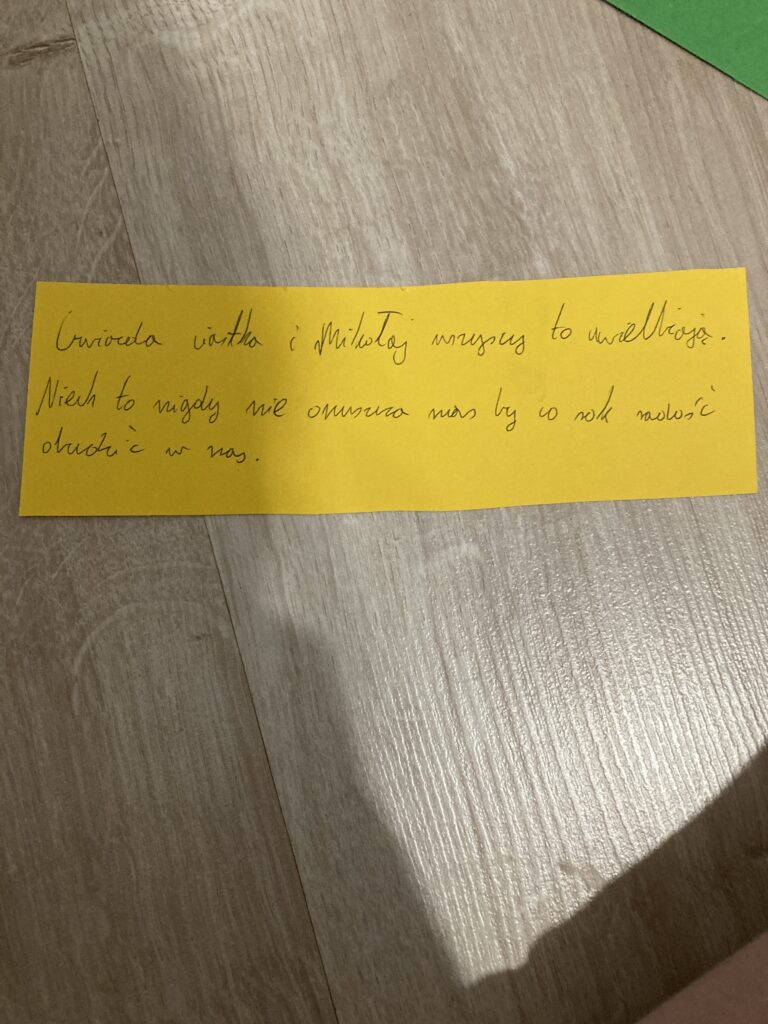 Gwiazda ciastka i Mikołaj wszyscy to uwielbiają.
Niech to nigdy nie opuszcza nas by co rok radość
obudzić w nas.